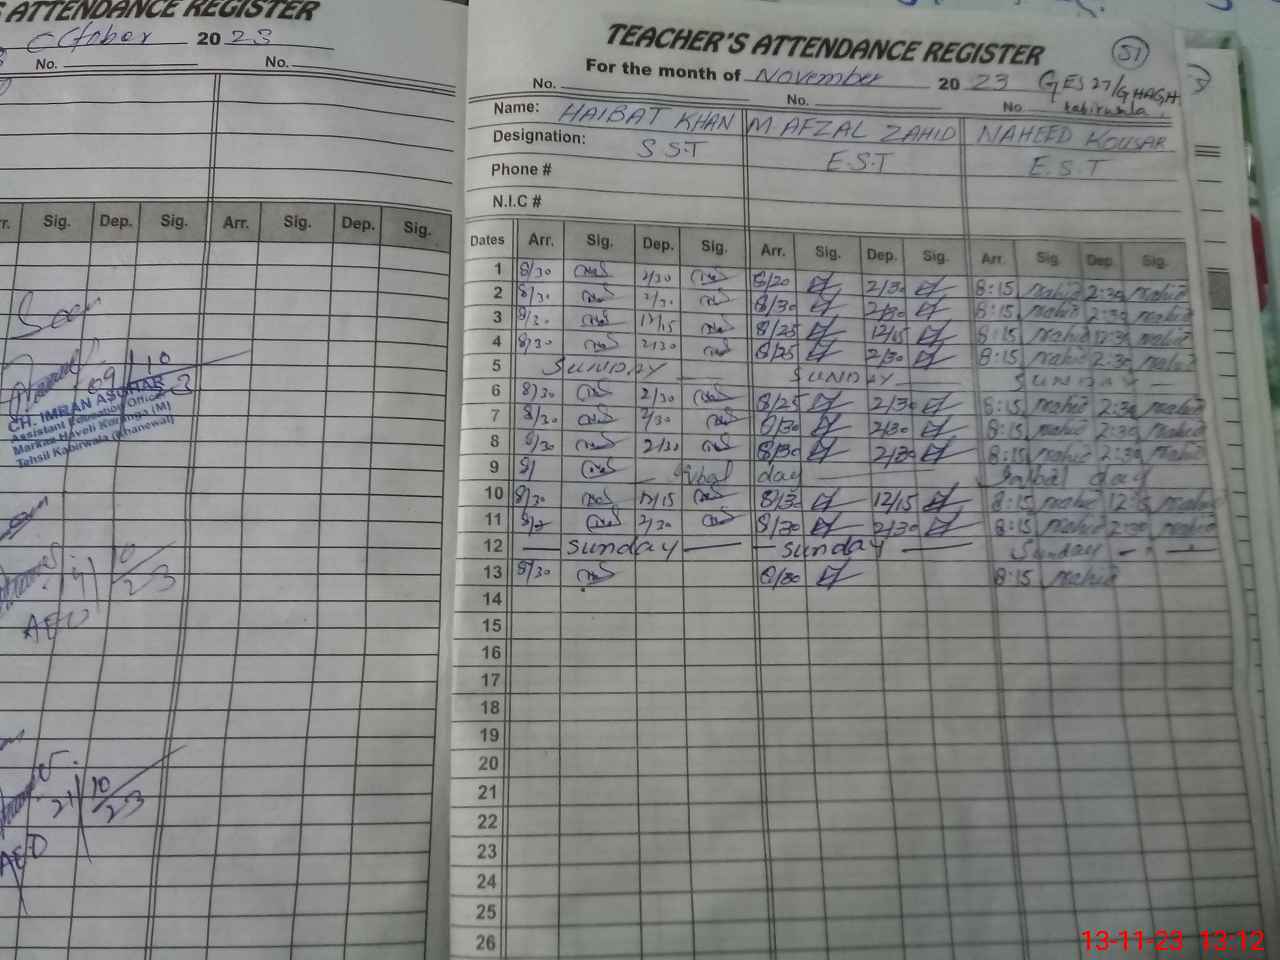 S ATTENDANCE REGISTER
October 20 23
No. No.
Sig. Dep. Sig. Arr. Sig. Dep. Sig.
Seen
09/10
23
CH. IMRAN ASGHAR
Assistant Education Officer
Markaz Haveli Koranga (M)
Tehsil Kabirwala (Khanewal)
10
23
AEO
21/10
23
AEO
TEACHER'S ATTENDANCE REGISTER 51
For the month of November 20 23 GES 27/GHAGH
No. No. No. kabirwala.
Name: HAIBAT KHAN M AFZAL ZAHID NAHEED KOUSAR
Designation: S S.T E.S.T E.S.T
Phone #
N.I.C #
Dates Arr. Sig. Dep. Sig. Arr. Sig. Dep. Sig. Arr. Sig. Dep. Sig.
1 8/30 2/30 8/20 2/30 8:15 nahid 2:30 nahid
2 8/30 2/30 8/30 2/30 8:15 nahid 2:30 nahid
3 8/30 12/15 8/25 12/15 8:15 nahid 12:30 nahid
4 8/30 2/30 8/25 2/30 8:15 nahid 2:30 nahid
5 SUNDAY SUNDAY SUNDAY
6 8/30 2/30 8/25 2/30 8:15 nahid 2:30 nahid
7 8/30 2/30 8/30 2/30 8:15 nahid 2:30 nahid
8 8/30 2/30 8/30 2/30 8:15 nahid 2:30 nahid
9 8/ Iqbal day Iqbal day
10 8/30 12/15 8/30 12/15 8:15 nahid 12:15 nahid
11 2/30 8/30 2/30 8:15 nahid 2:30 nahid
12 sunday sunday Sunday
13 8/30 8/30 8:15 nahid
14
15
16
17
18
19
20
21
22
23
24
25
26
13-11-23 13:12